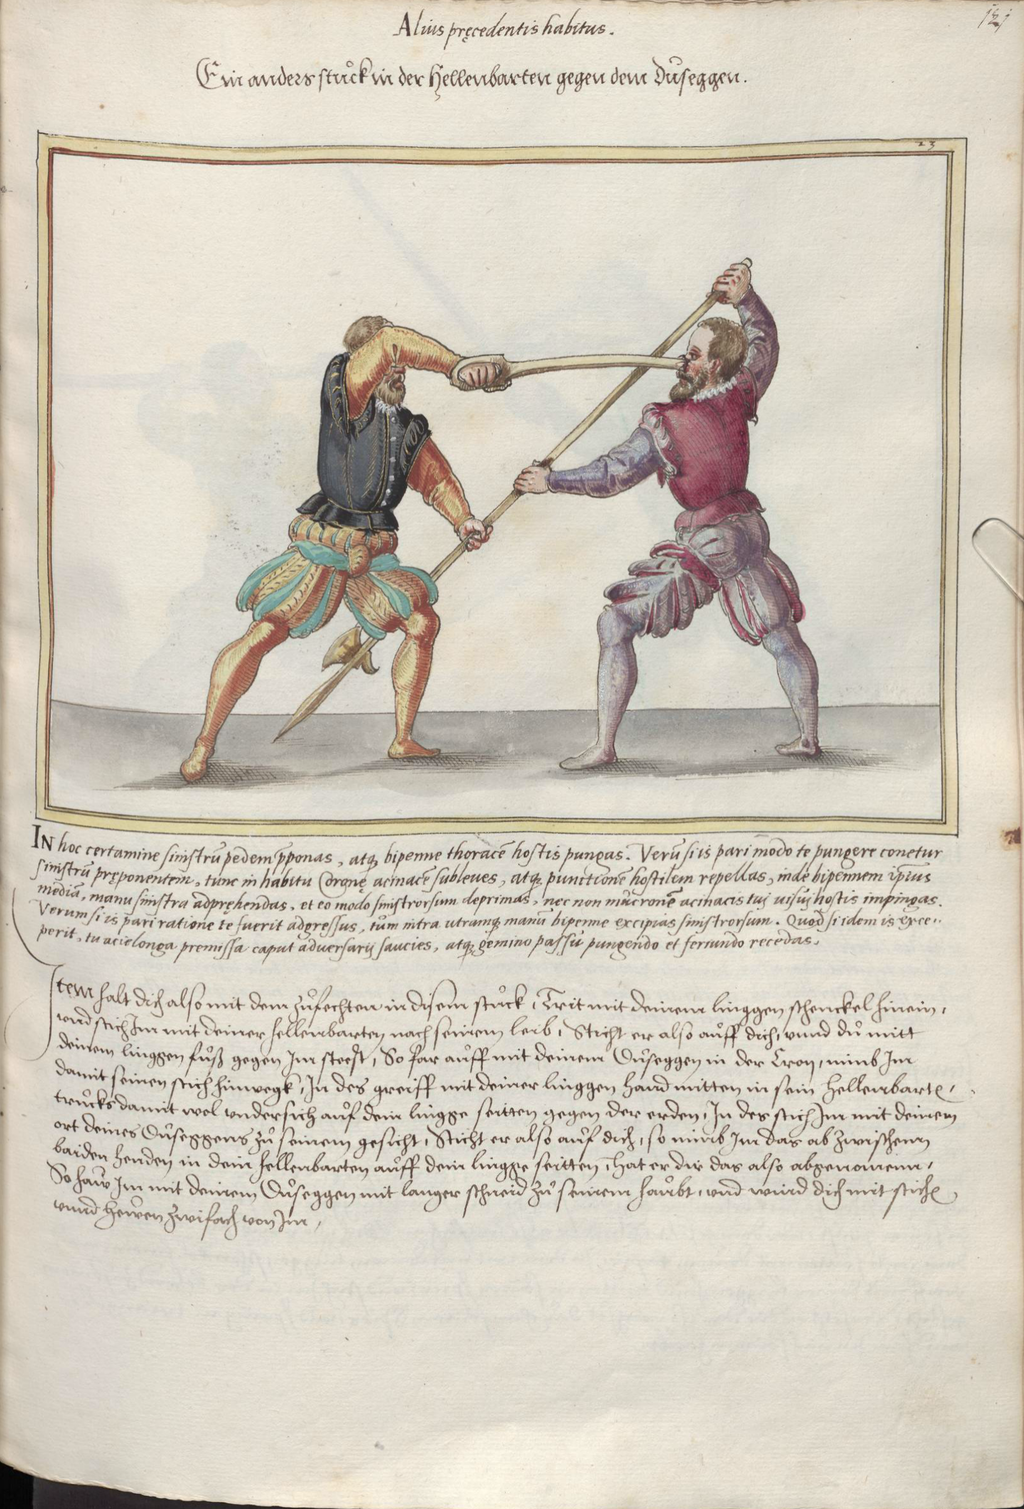 121
Alius pręcedentis habitus.
Ein anders stuck in der Hellenbarten gegen dem Duseggen.
23
IN hoc certamine sinistrũ pedem p̱ponas, atq̨ bipenne thoracẽ hostis pungas. Verũ si is pari modo te pungere conetur
sinistrũ pręponentem, tunc in habitu Coronę acinacẽ subleues, atq̨ punctionẽ hostilem repellas, inde bipennem ipsius
mediã, manu sinistra adpręhendas, et eo modo sinistrorsum deprimas, nec non mucronẽ acinacis tui uisui hostis impingas.
Verum si is pari ratione te fuerit adgressus, tum intra utramq̨ manũ bipenne excipias sinistrorsum. Quod si idem is exce-
perit, tu acie longa premissa caput aduersarij saucies, atq̨ gemino passu pungendo et feriundo recedas.
Item halt dich also mit dem zufechten in disem stuck, Trit mit deinem linggen schenckel hinein,
vnd stich Im mit deiner hellenbarten nach seinem leib, Sticht er also auff dich, vnnd du mitt
deinem linggen fuß gegen Im steest, So far auff mit deinem Duseggen in der Cron, nimb Im
damit seinen stich hinwegk, In des greiff mit deiner linggen hand mitten in sein Hellenbartẽ,
trucks damit wol vndersich auf dein lingge seitten gegen der erden, In des stich Im mit deinem
ort deines Duseggens zu seinem gesicht, Sticht er also auf dich, so nimb Im das ab zwischenn
baiden henden in dein hellenbarten auff dein lingge seitten, hat er dir das also abgenomenn,
So haw Im mit deinem Duseggen mit langer schneid zu seinem haubt, vnd wind dich mit stichẽ
vnnd hewen zwifach von Im,